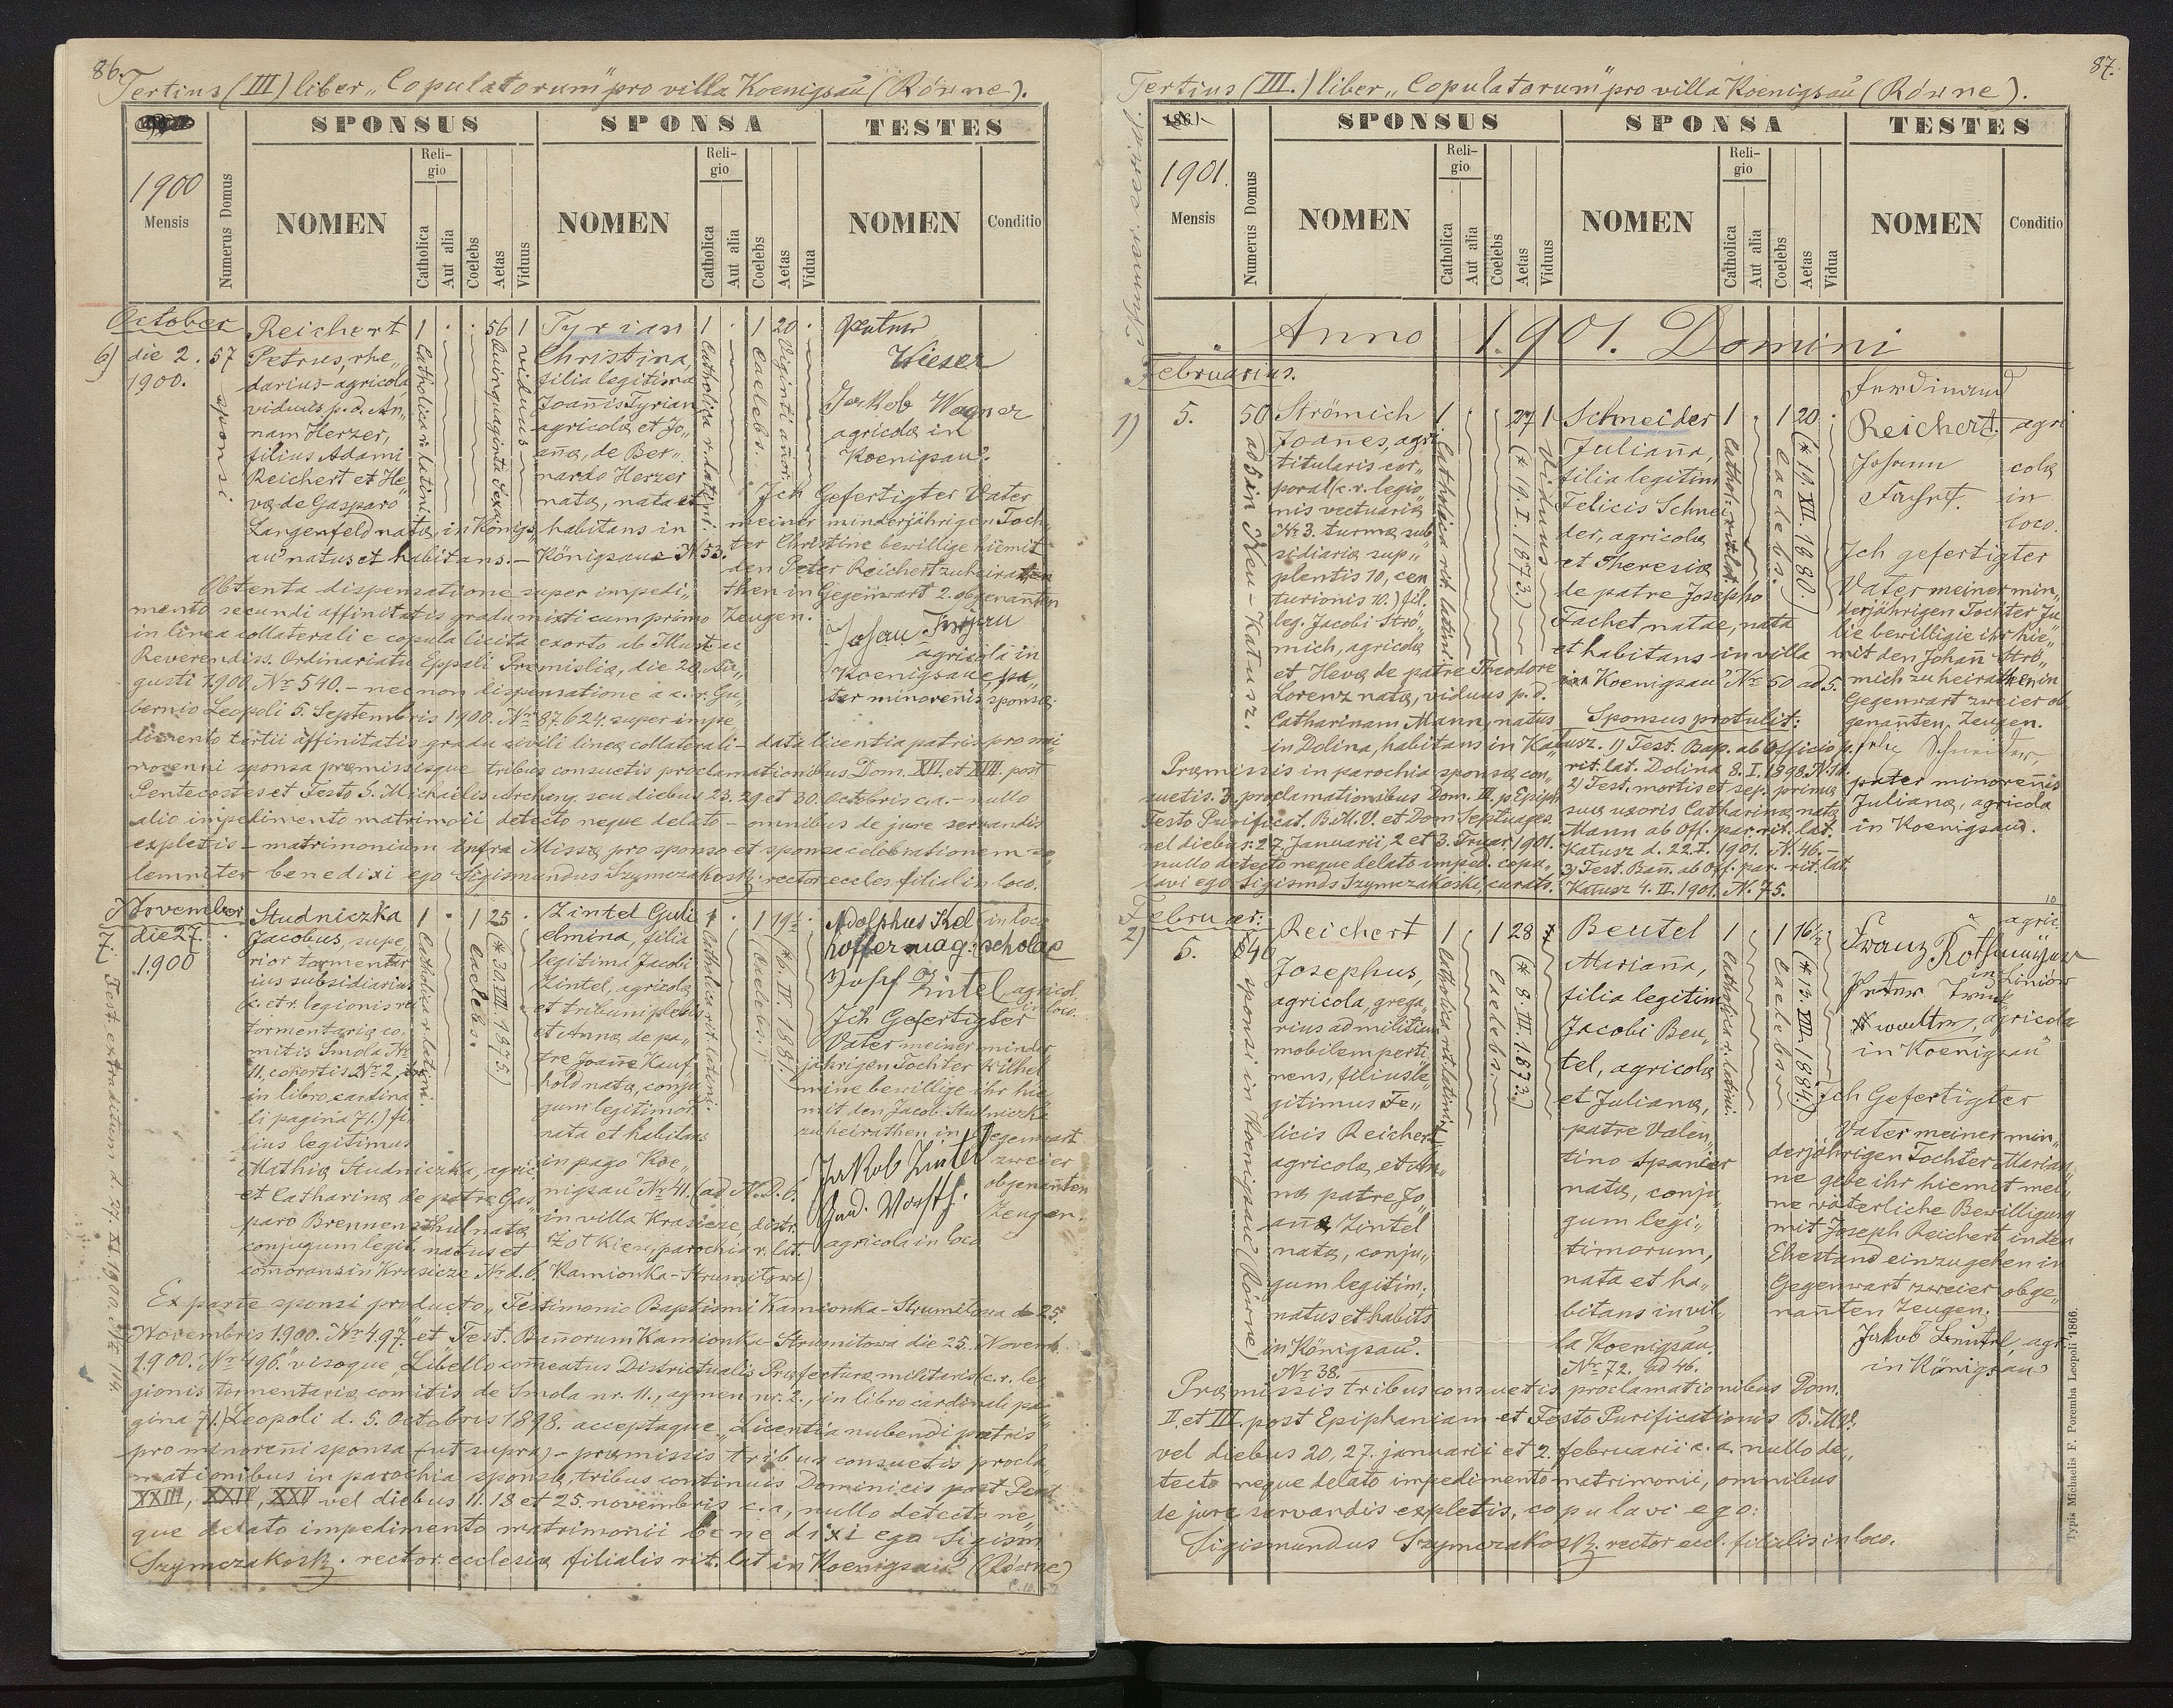 86.
Tertius (III) liber „Copulatorum" pro villa Koenigsau (Równe).
SPONSUS
SPONSA
TESTES
1900
Mensis
Numerus Domus
NOMEN
Religio
Catholica
Aut alia
Coelebs
Aetas
Viduus
NOMEN
Religio
Catholica
Aut alia
Coelebs
Aetas
Vidua
NOMEN
Conditio
October
6) die 2.
1900.
57
sponsi
Reichert
Petrus, rhe„
darius-agricola,
viduus p. d. An„
nam Herzer,
filius Adami
Reichert et He„
va de Gasparo
Langenfeld nata, in Königs„
au natus et habitans. —
1 56 1
Catholica r. latini.
Quinquaginta Sex a.
viduus
Tyrian
Christina,
filia legitima
Joannis Tyrian
agricola et Jo„
anna, de Ber„
nardo Herzer
nata, nata et
habitans in
Königsau N. 53.
1 1 20
Catholica r. latini.
Caelebs.
Viginti annor.
Peter
Wieser
Jakob Wagner
agricola in
Koenigsau.
Ich Gefertigter Vater
meiner minderjährigen Toch„
ter Christine bewillige hiemit
den Peter Reichert zu heira„
then in Gegenwart 2. obgenannten
Zeugen.
Johan Tyrjan
agricola in
Koenigsau, pa„
ter minorennis sponsa.
Obtenta dispensatione super impedi„
mento secundi affinitatis gradu mixti cum primo
in linea collaterali e copula licita exorto ab Illust. ac
Reverendiss. Ordinariatu Eppali Premislia, die 20. Au„
gusti 1900 Nr. 540. — necnon dispensatione a c. r. Gu„
bernio Leopoli 5. Septembris 1900. Nr. 87.624. super impe„
dimento tertii affinitatis gradu civili linea collaterali — data licentia patris pro mi„
norenni sponsa premissisque tribus consuetis proclamationibus Dom. XVI. et XVII. post
Pentecostes et Festo S. Michaelis Archang. seu diebus 23. 29 et 30. Octobris c.a. — nullo
alio impedimento matrimonii detecto neque delato — omnibus de jure servandis
expletis — matrimonium infra Missa pro sponso et sponsa celebrationem so„
lemniter benedixi ego Sigismundus Szymczakoski rector eccles. filial in loco.
November
7) die 27.
1900
Test. extraditum d. 27. XI. 1900. Nr. 114.
Studniczka
Jacobus, supe„
rior tormentar„
ius subsidiarius
c. et r. legionis re
tormentaria co„
mitis Smola Nr.
11, cohortis Nr. 2,
in libro cardina„
li pagina 71.) fi„
lius legitimus
Mathia Studniczka, agric.
et Catharina de patre Gas„
paro Brennensthul nata
conjugum legit. natus et
comorans in Krasicze N. d. 6.
1 1 25
Catholica r. latini.
Caelebs.
(* 30. VII. 1875.)
Zintel Guli„
elmina, filia
legitima Jacobi
Zintel, agricola
et tribuni plebis
et Anna de pa„
tre Joanne Kauf„
hold nata, conju
gum legitimor.
nata et habitans
in pago Koe„
nigsau Nr. 41. (ad N. d. 6.
in villa Krasicze, distr.
Żołkiew, parochia r. lat.
Kamionka-Strumiłowa)
1 1 19½
Catholica rit. latini.
Caelebs.
Adolphus Kel in loco
hoffer mag: scholae
Josef Zintel agricol.
in loco.
Ich Gefertigter
Vater meiner minder„
jährigen Tochter Wilhel„
mine bewillige ihr hie„
mit den Jacob Studniczka
zu heirathen in Gegenwart
zweier
obgenannten
Zeugen.
Jakob Zintel
agricola in loco
Ex parte sponsi producto „Testimonio Baptismi Kamionka-Strumiłowa d. 25.
Novembris 1900. Nr. 497." et „Test. Bannorum Kamionka-Strumiłowa die 25. Novemb.
1900. Nr. 496." visoque „Libello comeatus Districtualis Prafectura militaris c. r. le„
gionis tormentaria comitis de Smola nr. 11., agmen nr. 2., in libro cardinali pa„
gina 71.) Leopoli d. 5. Octobris 1898. acceptaque „Licentia nubendi patris
pro minorenni sponsa (ut supra) — pramissis tribus consuetis procla„
mationibus in parochia sponsa, tribus continuis Dominicis post Pent.
XXIII, XXIV, XXV vel diebus 11. 18 et 25. novembris c.a., nullo detecto ne„
que delato impedimento matrimonii benedixi ego Sigism.
Szymczakoski. rector ecclesia filialis rit. lat in Koenigsau (Równe)
87.
Tertius (III.) liber „Copulatorum" pro villa Koenigsau (Równe).
Numer. serial.
SPONSUS
SPONSA
TESTES
186
1901.
Mensis
Numerus Domus
NOMEN
Religio
Catholica
Aut alia
Coelebs
Aetas
Viduus
NOMEN
Religio
Catholica
Aut alia
Coelebs
Aetas
Vidua
NOMEN
Conditio
Anno 1901. Domini
Februarius.
1) 5.
50
ad 5 in Neu-Kałusz.
Strömich
Joanes, agri
titularis cor„
poral (c. r. legio
nis vectuaria
Nr. 3. turma sub„
sidiaria sup„
plentis 10, cen
turionis 10.) fil.
leg. Jacobi Strö„
mich, agricola
et Heva de patre Theodore
Lorenz nata, viduus p. d.
Catharinam Mann, natus
in Dolina, habitans in Kałusz.
1 27 1
Catholica rit. latini
(* 19. I. 1873.)
Viduus
Schneider
Juliana,
filia legitim
Felicis Schnei
der, agricola
et Theresia
de patre Josepho
Fachet, natae, nata
et habitans in villa
Koenigsau Nr. 50 ad 5.
1 1 20
Cathol. rit. lat.
Caelebs.
(* 19. XII. 1880.)
Ferdinand
Reichert
Johann
Fachet
agri
cola
in
loco.
Ich gefertigter
Vater meiner min„
derjährigen Tochter Ju„
lie bewilligie ihr hie„
mit den Johann Strö„
mich zu heirathen in
Gegenwart zweier ob„
genannten Zeugen.
Schneider,
pater minorennis
Juliana, agricola
in Koenigsau.
Sponsus protulit:
1) Test. Bap. ab Officio p.
rit. lat. Dolina 8. I. 1898. N. 10.
2) Test. mortis et sep. prima
sua uxoris Catharina nata
Mann ab Off. par. rit. lat.
Kałusz d. 22. I. 1901. N. 46. —
3) Test. Bann. ab Off. par. rit. lat.
Kałusz 4. II. 1901. N. 75.
Pramissis in parochia sponsa con„
suetis. 3. proclamationibus Dom. III. p. Epiph.
Festo Purificat. B.M.V. et Dom Septuages.
vel diebus: 27. Januarii, 2 et 3. Fruar. 1901.
nullo detecto neque delato imped. copu„
lavi ego Sigismds Szymczakoski, curats.
Februar:
2) 5.
40
sponsi in Koenigsau (Równe)
Reichert
Josephus,
agricola, grega„
rius ad militiam
mobilem perti„
nens, filius le„
gitimus Fe„
licis Reichert
agricola, et An„
na patre Jo„
anne Zintel
nata, conju„
gum legitim.
natus et habits
in Königsau.
Nr. 38.
1 1 28
Catholica rit. latini
Caelebs.
(* 8. III. 1873.)
Beutel
Marianna,
filia legitim
Jacobi Beu„
tel, agricola
et Juliana,
patre Valen„
tino Spanier
nata, conju„
gum legi„
timorum,
nata et ha„
bitans in vil„
la Koenigsau.
Nr. 72. ad 46.
1 1 16½
Catholica r. latini.
Caelebs
(* 13. VIII. 1884.)
Franz Rothmüyer
agric.
in Liniow
Peter
agricola
in Koenigsau
Ich Gefertigter
Vater meiner min„
derjährigen Tochter Marian„
ne gebe ihr hiemit mei„
ne väterliche Bewilligung
mit Joseph Reichert in den
Ehestand einzugehen in
Gegenwart zweier obge„
nannten Zeugen.
Jakob Beutel, agr.
in Königsau
Pramissis tribus consuetis proclamationibus Dom.
II. et III. post Epiphaniam et Festo Purificationis B.M.V.
vel diebus 20, 27. januarii et 2. februarii c. a. nullo de„
tecto neque delato impedimento matrimonii, omnibus
de jure servandis expletis, copulavi ego:
Sigismundus Szymczakoski rector eccl. filialis in loco.
Typis Michaelis F. Poremba Leopoli 1866.